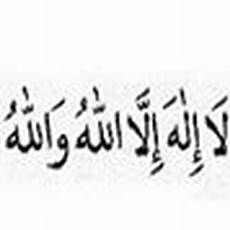 لَا إِلٰهَ إِلَّا اللّٰهُ وَاللّٰهُ